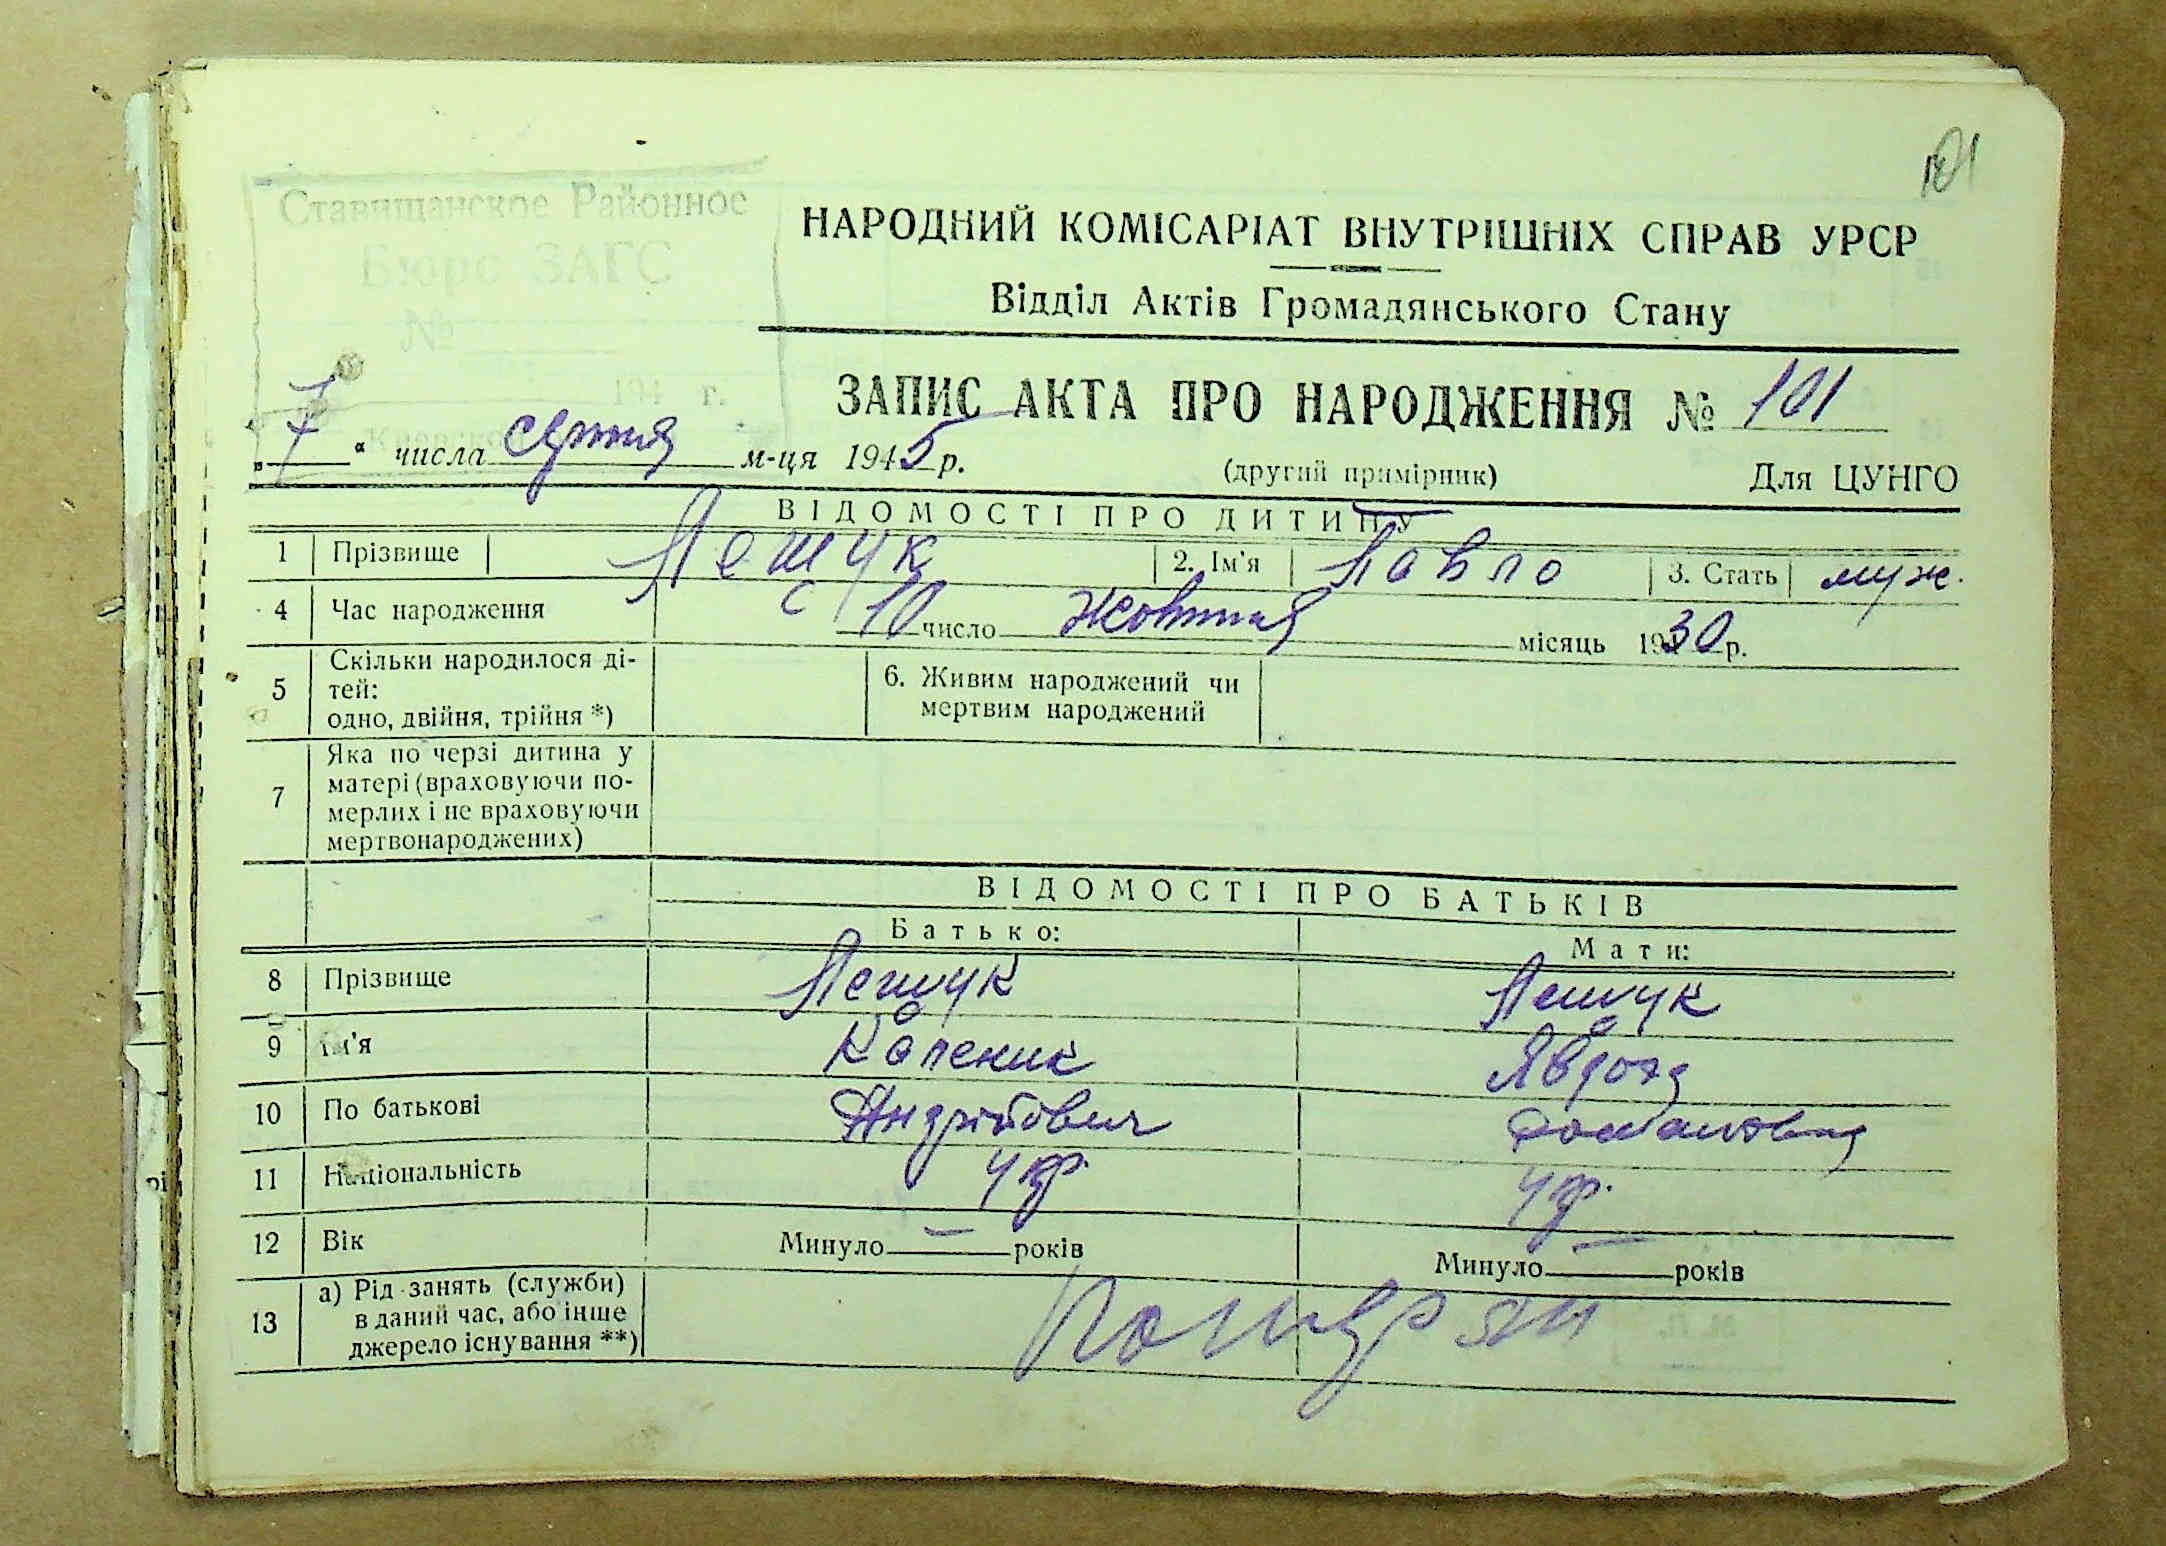 101
Ставищанское Районное
Бюро ЗАГС
№
194 г.
НАРОДНИЙ КОМІСАРІАТ ВНУТРІШНІХ СПРАВ УРСР
Відділ Актів Громадянського Стану
ЗАПИС АКТА ПРО НАРОДЖЕННЯ № 101
„7“ числа серпня м-ця 1945 р.
(другий примірник) Для ЦУНГО
ВІДОМОСТІ ПРО ДИТИНУ
1 Прізвище Лещук 2. Ім'я Павло 3. Стать муж.
4 Час народження 10 число жовтня місяць 1930 р.
5 Скільки народилося ді-
тей:
одно, двійня, трійня *)
6. Живим народжений чи
мертвим народжений
7 Яка по черзі дитина у
матері (враховуючи по-
мерлих і не враховуючи
мертвонароджених)
ВІДОМОСТІ ПРО БАТЬКІВ
Батько: Мати:
8 Прізвище Лещук Лещук
9 Ім'я Каленик Явдоха
10 По батькові Андрійович
11 Національність укр. укр.
12 Вік Минуло — років Минуло — років
13 а) Рід занять (служби)
в даний час, або інше
джерело існування **)